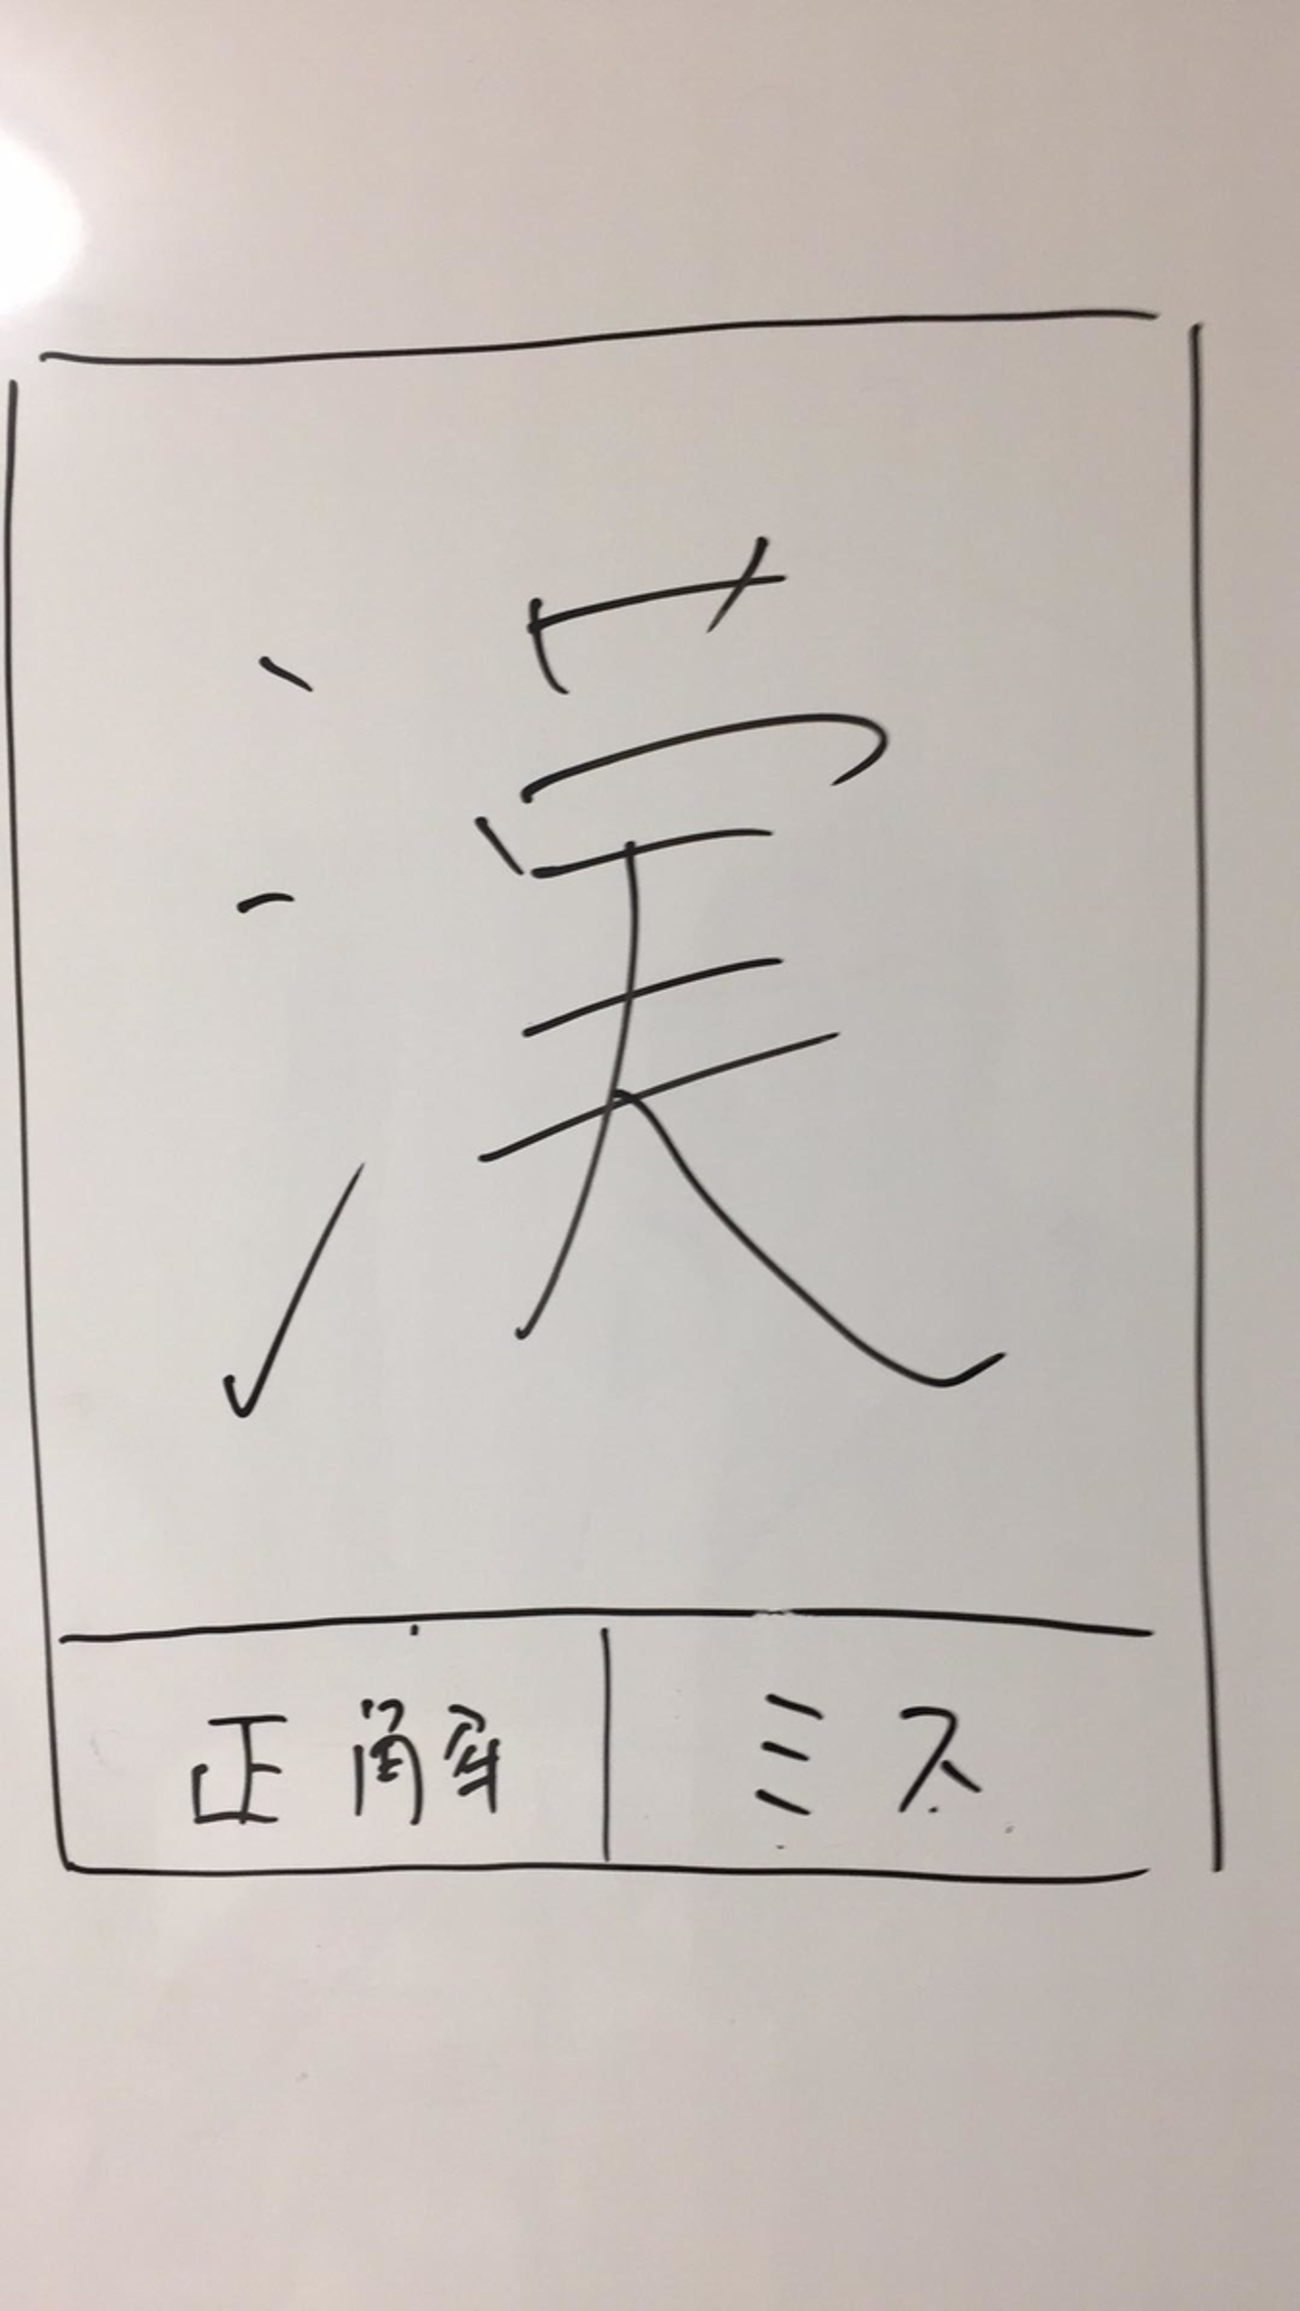 漢
正解 ミス